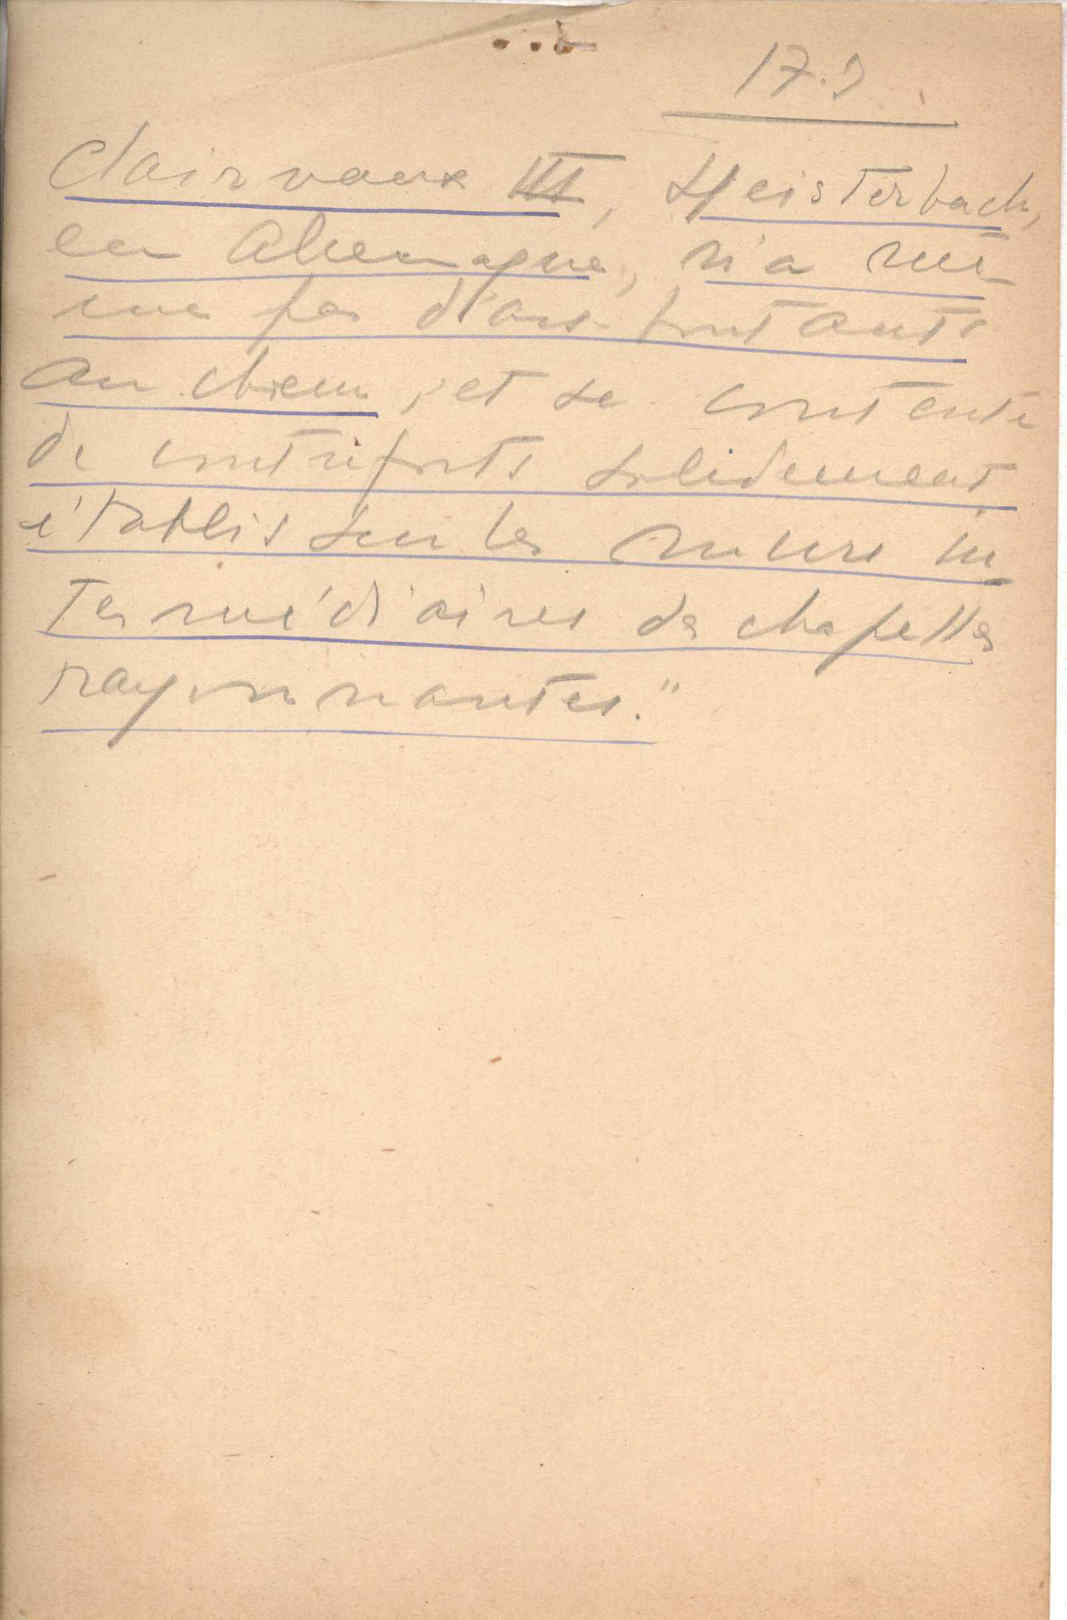 17.
Clairvaux III, Heisterbach,
en Allemagne, n'a mê-
me pas d'arcs-boutants
au choeur, et se contente
de contreforts solidement
établis sur les murs in
termédiaires des chapelles
rayonnantes."